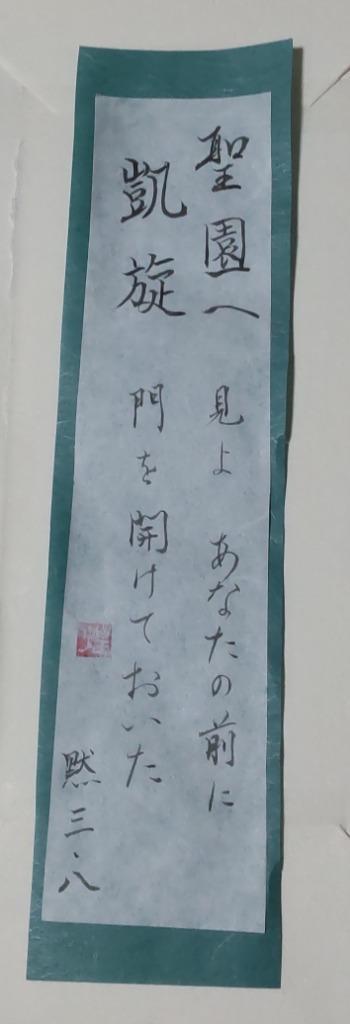 聖園へ 見よ あなたの前に
凱旋 門を開けておいた
黙三・八